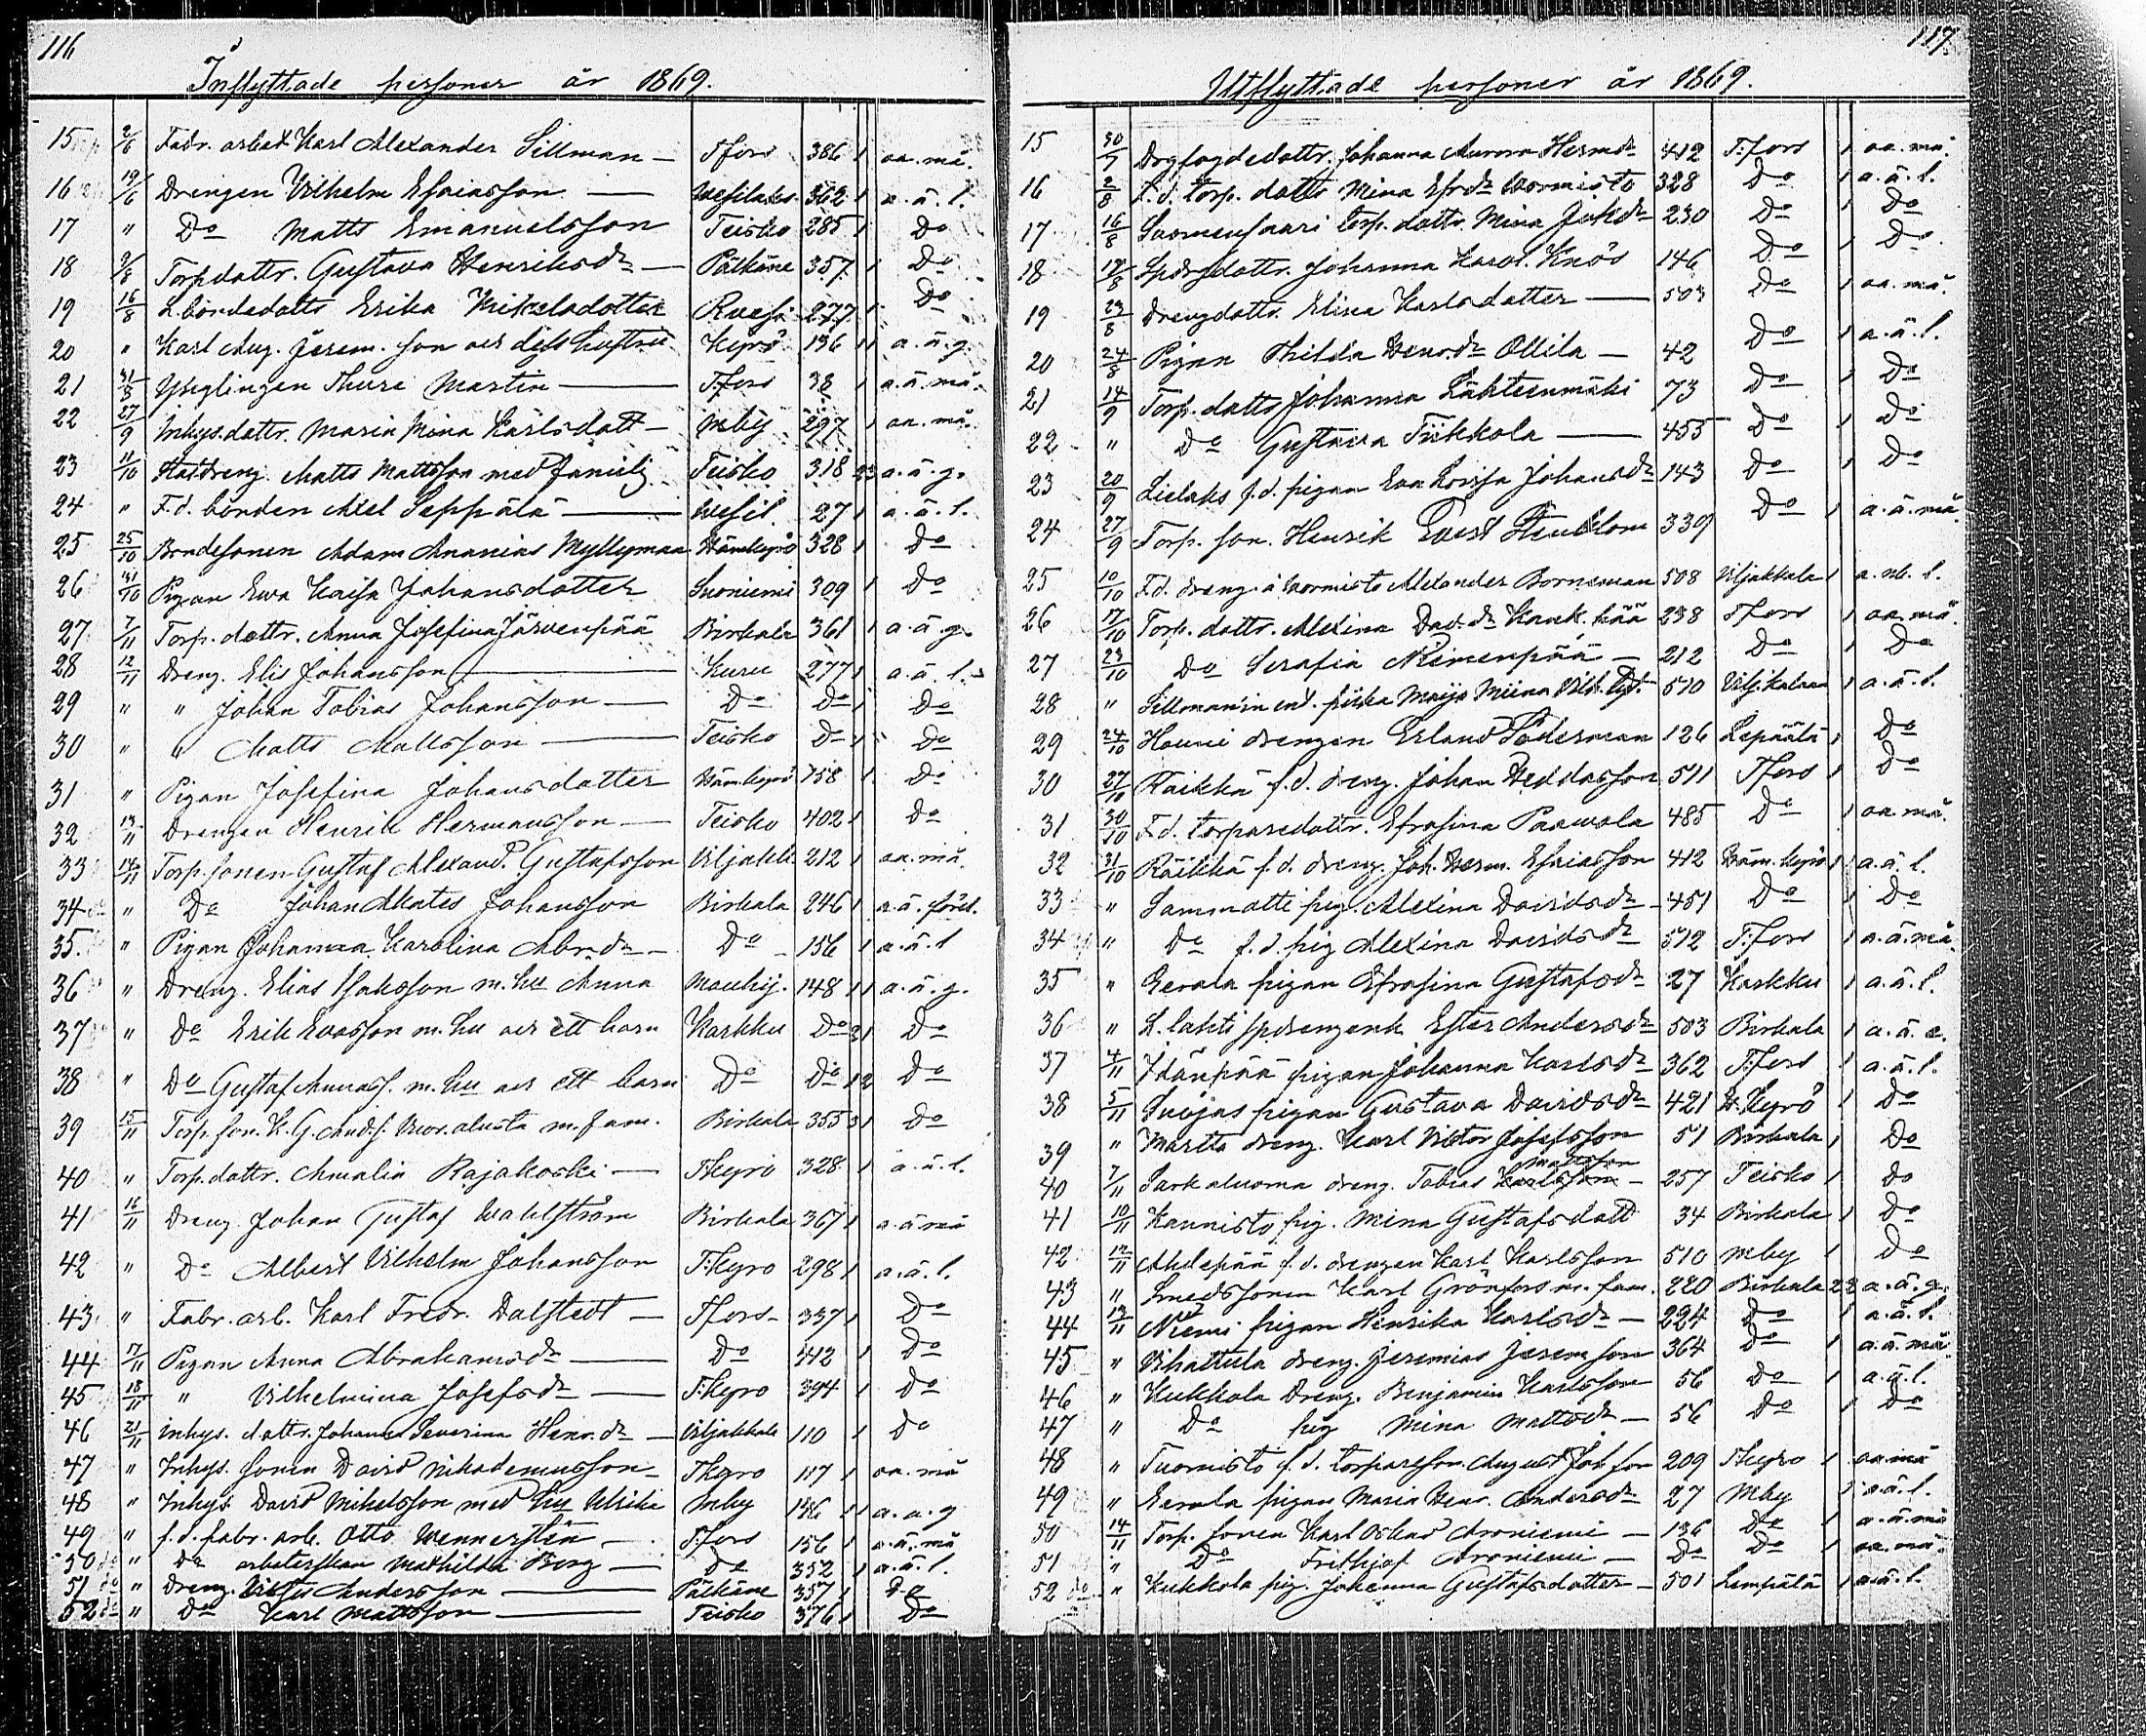 116
Inflyttade personer år 1869.
15 2/6 Fabr. arbet Karl Alexander Sillman — Tfors 386 1 aa. må.
16 19/6 Drengen Vilhelm Esaiasson — Wesilaks 362 1 a. ä. l.
17 " Do Matts Emanuelsson Teisko 285 1 Do
18 2/8 Torpdottr. Gustava Henriksdr — Pälkäne 357 1 Do
19 16/8 L. bondedottr Erika Mikelsdotter Ruovesi 277 1 Do
20 " Karl Aug. Jerem. son och dess hustru Kyrö 136 1 1 a. ä. g.
21 31/8 Ynglingen Thure Martin — T:fors 38 1 a. ä. må.
22 27/9 Inhys. dottr. Maria Mina Karlsdott — Mby 297 1 aa. må.
23 11/10 Matts Mattsson med familj Teisko 318 23 a. ä. g.
24 " F.d. bonden Axel Seppälä — Wesil. 27 1 a. ä. l.
25 25/10 Bondesonen Adam Ananias Myllymaa Hämkyrö 328 1 Do
26 31/10 Pigan Ewa Kaisa Johansdotter Suoniemi 309 1 Do
27 7/11 Torp. dottr. Anna Josefina Järvenpää Birkala 361 1 a. ä. g.
28 12/11 Dreng. Elis Johansson — Kuru 277 1 a. ä. l.
29 " " Johan Tobias Johansson — Do Do 1 Do
30 " " Matts Mattsson — Teisko Do 1 Do
31 " Pigan Josefina Johansdotter Hämkyrö 158 1 Do
32 13/11 Drengen Henrik Hermansson — Teisko 402 1 Do
33 14/11 Torp. sonen Gustaf Alexand. Gustafsson Viljakk. 212 1 aa. må.
34 " Do Johan Mates Johansson Birkala 246 1 a. ä. förd.
35. " Pigan Johanna Karolina Abr.dr — Do — 156 1 a. ä. l
36 " Dreng. Elias Isaksson m. hu Anna Mouhij. 148 1 1 a. ä. g.
37 " Do Erik Evasson m. hu och ett barn Karkku Do 2 1 Do
38 " Do Gustaf Annass. m. hu och ett barn Do Do 1 2 Do
39 15/11 Torp. son. K. G. And.s. m. fam. Birkala 355 3 1 Do
40 " Torp. dottr. Amalia Rajakoski — T:kyrö 328 1 a. ä. l.
41 16/11 Dreng. Johan Gustaf Wahlström Birkala 367 1 a. ä må
42 " Do Albert Vilhelm Johansson T:kyro 298 1 a. ä. l.
43 " Fabr. arb. Karl Fredr. Dalstedt — Tfors — 337 1 Do
44 17/11 Pigan Anna Abrahamsdr — Do 442 1 Do
45 18/11 " Vilhelmina Josefsdr — T:kyro 394 1 Do
46 21/11 Inhys. dottr. Johanna Severina Henr.dr — Viljakkala 110 1 Do
47 " Inhys. sonen David Nikodemusson — Tkyro 117 1 aa. må
48 " Inhys David Mikelsson med hu Ulrika Mby 186 1 1 a. ä. g
49 " f. d. fabr. arb. Otto Wennersten — T:fors 156 1 a. ä. må
50 do " Do arbeterskan Mathilda Borg — Do 352 1 a. ä. l.
51 do " Dreng. Andersson — Pälkäne 357 1 Do
52 do " Do Karl Mattsson — Teisko 376 1 Do
117
Utflyttade personer år 1869.
15 30/7 Dragfogdedottr. Johanna Aurora Hermdr 412 T:fors 1 aa. må.
16 2/8 F. d. torp. dottr Mina Efr.dr Wormisto 328 Do 1 a. ä. l.
17 16/8 Saarensaari torp. dottr. Mina Joh.dr 230 Do 1 Do
18 17/8 Johanna Karol. Knös 146 Do 1 Do
19 23/8 Drengdottr. Elina Karlsdotter — 503 Do 1 aa. må.
20 24/8 Pigan Hilda Henr.dr Ollila — 42 Do 1 a. ä. l.
21 14/9 Torp. dottr Johanna Lähteenmäki 73 Do 1 Do
22 " Do Gustava Tiikkola — 455 Do 1 Do
23 20/9 Lielaks f. d. pigan Eva Lovisa Johansdr 143 Do 1 Do
24 27/9 Torp. son. Henrik Evert Stenblom 339 Do 1 a. ä. må
25 10/10 F.d. dreng. å Wormisto Alexander Borneman 508 Viljakkala 1 a. l.
26 17/10 Torp. dottr. Alexina Dav.dr Kankanpää 238 Tfors 1 aa. må.
27 23/10 Do Serafia Niemenpää — 212 Do 1 Do
28 " Sillman'in ent. piika Maija Miina Vilh. tyt. 510 Viljakalaan 1 a. ä. l.
29 24/10 Haavi drengen Erland Söderman 126 Lepäälä 1 Do
30 27/10 Räikkä f. d. dreng. Johan Heddasson 511 Tfors 1 Do
31 30/10 F. d. torparedottr. Efrosina Paavola 485 Do 1 aa må.
32 31/10 Räikkä f. d. dreng. Joh. Herm. Esaiasson 412 Häm.kyrö 1 a. ä. l.
33 " Sammatti pig. Alexina Davidsdr — 451 Do 1 Do
34 " Do f. d. pig Alexina Davidsdr 512 T:fors 1 a. ä. må.
35 " Eerola pigan Efrosina Gustafsdr 27 Karkku 1 a. ä. l.
36 " L. lahti Ester Andersdr 503 Birkala 1 a. ä. l.
37 4/11 Ylänpää pigan Johanna Karlsdr 362 T:fors 1 a. ä. l.
38 5/11 Suojas pigan Gustava Davidsdr 421 H. Kyrö 1 Do
39 " Martta dreng. Karl Viktor Josefsson 51 Birkala 1 Do
Mattsson
40 7/11 Sarkaluoma dreng. Tobias Karlsson — 257 Teisko 1 Do
41 10/11 Kannisto pig. Mina Gustafsdott 34 Birkala 1 Do
42 12/11 Ahdepää f. d. drengen Karl Karlsson 510 Mby 1 Do
43 " Smedssonen Karl Grönfors m. fam. 220 Birkala 2 2 a. ä. g.
44 13/11 Niemi pigan Henrika Karlsdr — 224 Do 1 a. ä. l.
45 " Vihattula dreng. Jeremias Jeremson 364 Do 1 a. ä. må
46 " Kukkola Dreng. Benjamin Karlsson 56 Do 1 a. ä. l.
47 " Do pig Mina Mattsdr — 56 Do 1 Do
48 " Tuomisto f. d. torpareson August Joh.son 209 T:kyro 1 aa må
49 " Eerola pigan Maria Henr. Andersdr 27 Mby 1 a. ä. l.
50 14/11 Torp. sonen Karl Oskar Aroniemi — 136 Do 1 a. ä. må
51 " Do Frithjof Aroniemi — Do Do 1 aa. må.
52 do " Kukkola pig. Johanna Gustafsdotter — 501 Lempälä 1 a. ä. l.